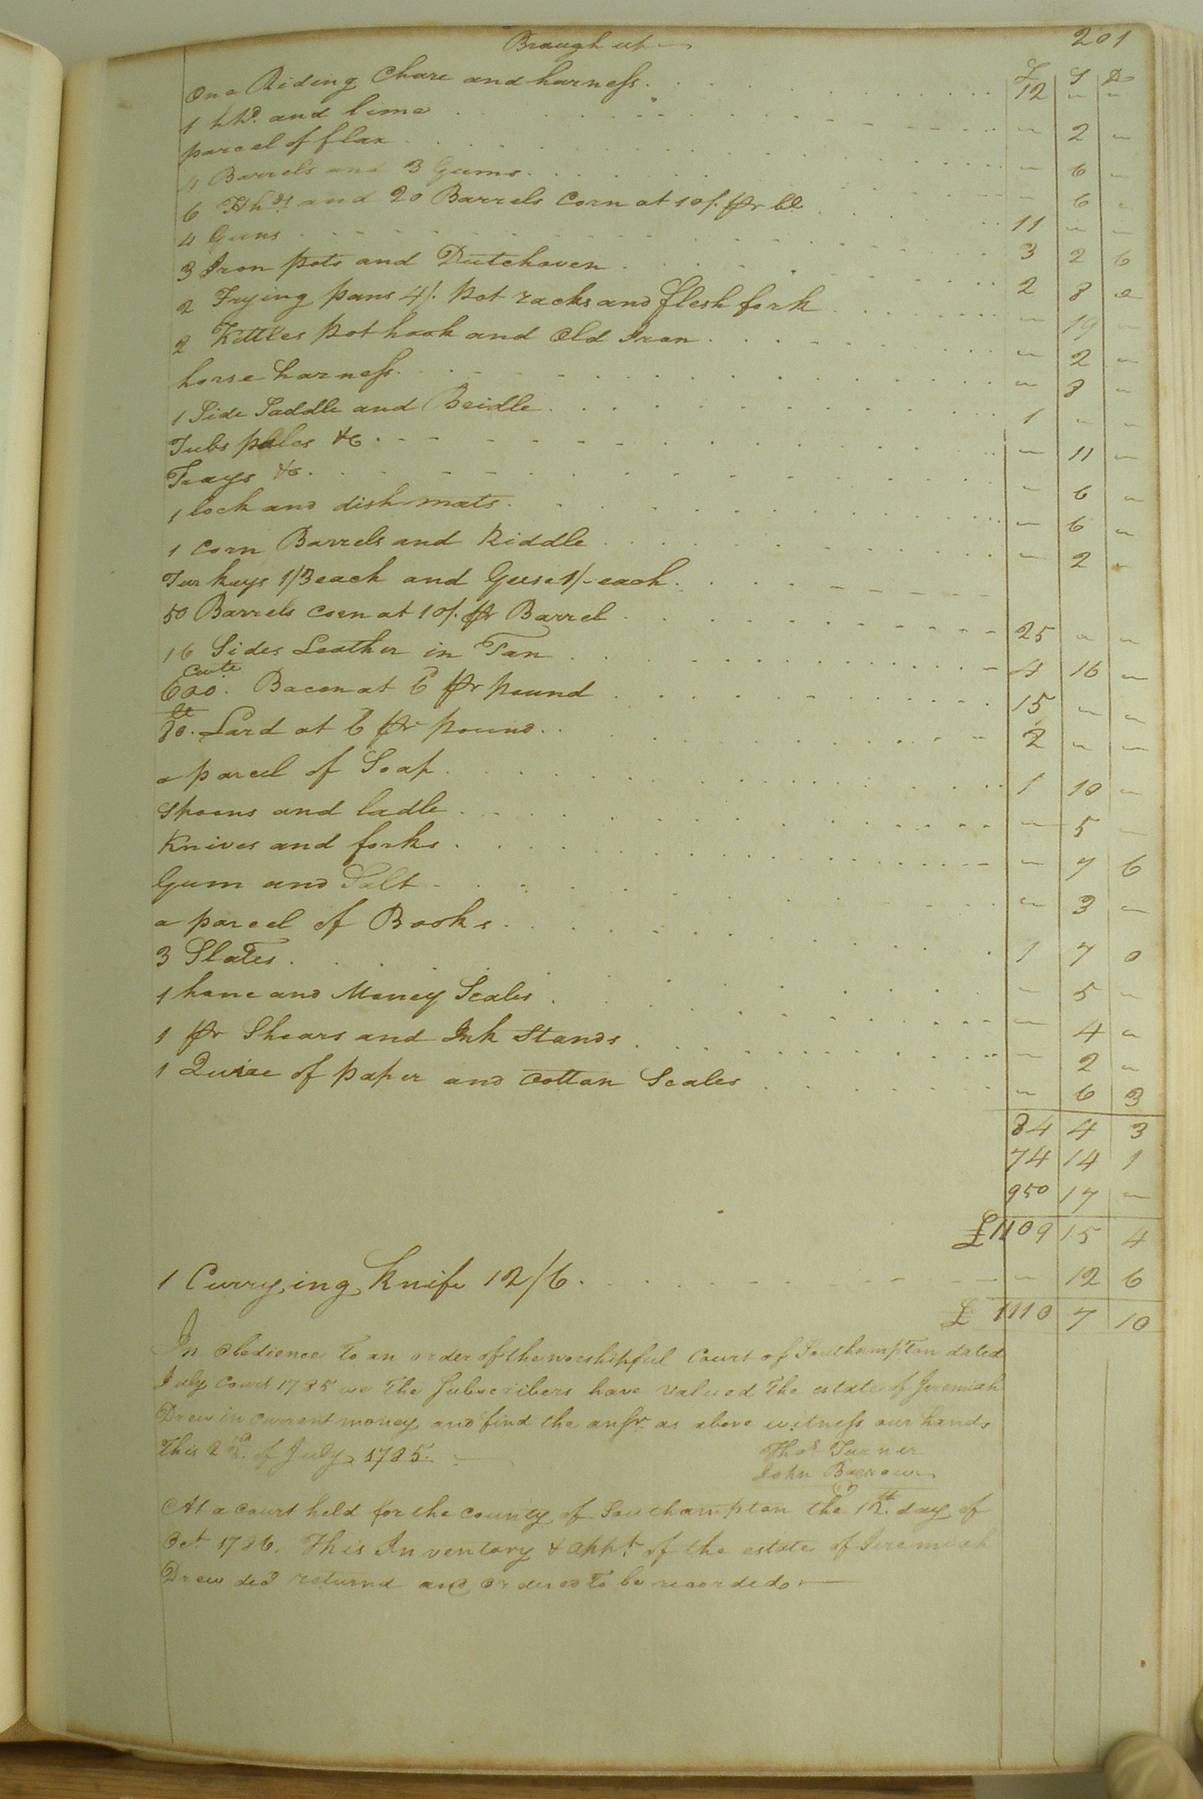 Brough up 201
£ S D
One Riding Chare and harness. 12 " "
1 hhd. and lime " 2 "
parcel of flax " 6 "
4 Barrels and 3 Gums " 6 "
6 Hhds and 20 Barrels Corn at 10/. pr bl. 11 " "
4 Guns 3 2 6
3 Iron pots and Dutchoven 2 8 "
2 Frying pans 4/. pot racks and flesh fork " 19 "
2 Kittles pot hook and Old Iron " 2 "
horse harness " 8 "
1 Side Saddle and Bridle 1 " "
Tubs pales &c " 11 "
Trays &c " 6 "
1 lock and dish mats " 6 "
1 Corn Barrels and Riddle " 2 "
Turkeys 1/3 each and Geese 1/- each
50 Barrels corn at 10/. pr Barrel 25 " "
16 Sides Leather in Tan 4 16 "
600 Cwte. Bacon at 6d pr pound 15 " "
80 lb. Lard at 6 pr pound 2 " "
a parcel of Soap 1 10 "
Spoons and ladle " 5 "
Knives and forks " 7 6
Gum and Salt " 3 "
a parcel of Books 1 7 0
3 Slates " 5 "
1 hone and Money Scales " 4 "
1 pr Shears and Ink Stands " 2 "
1 Quire of paper and Cotton Scales " 6 3
84 4 3
74 14 1
950 17 "
£1109 15 4
1 Currying Knife 12/6. " 12 6
£ 1110 7 10
In obedience to an order of the worshipful Court of Southampton dated
July Court 1785 we The Subscribers have valued The estate of Jeremiah
Drew in Current money and find the ansr. as above witness our hands
This 22d. of July 1785.
Thos. Turner
John Barrow
At a court held for the county of Southampton the 12th. day of
Oct. 1786. This Inventory & appt. of the estate of Jeremiah
Drew decd returnd and ordered To be recorded